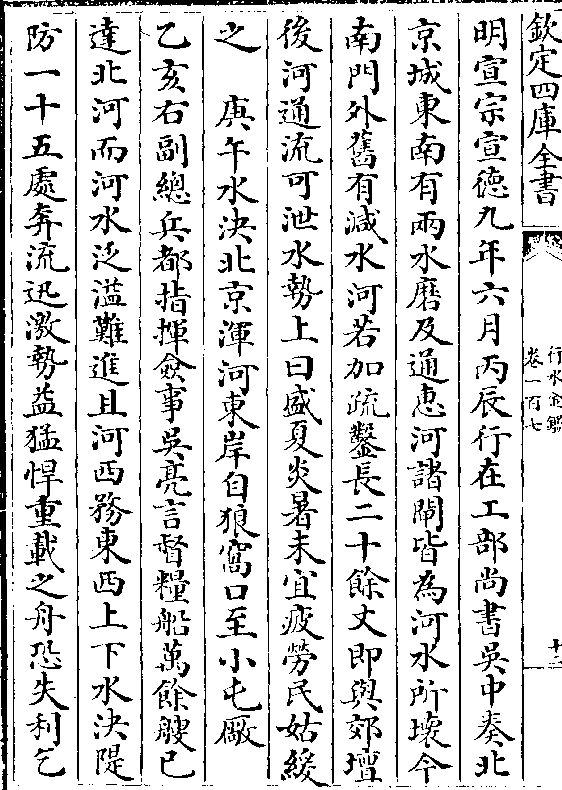 欽定四庫全書
行水金鑑
卷一百七
十二
明宣宗宣德九年六月丙辰行在工部尚書吳中奏北
京城東南有兩水磨及通惠河諸閘皆為河水所壞今
南門外舊有減水河若加疏鑿長二十餘丈即與郊壇
後河通流可泄水勢上曰盛夏炎暑未宜疲勞民姑緩
之　庚午水決北京渾河東岸自狼窩口至小屯厰
乙亥右副總兵都指揮僉事吳亮言督糧船萬餘艘已
達北河而河水泛溢難進且河西務東西上下水決隄
防一十五處奔流迅激勢益猛悍重載之舟恐失利乞